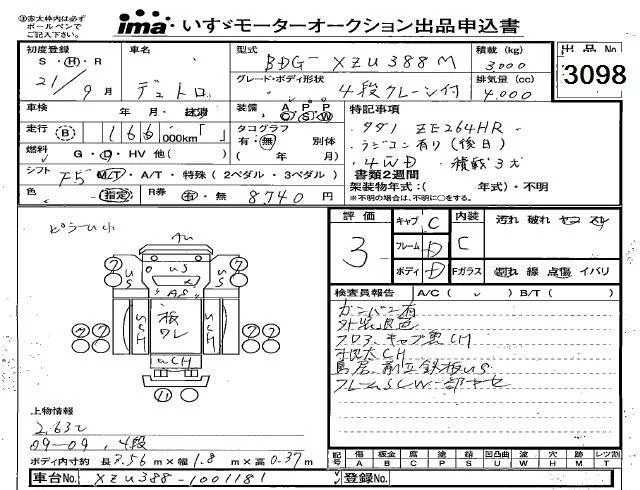 ※赤太枠内は必ず
ボールペンで
ご記入下さい。
ima いすゞモーターオークション出品申込書
出品No
3098
初度登録 S・H・R 21年9月
車名 デュトロ
型式 BDG-XZU388M
グレード・ボディ形状 4段クレーン付
積載 (kg) 3000
排気量 (cc) 4.000
車検 年 月・抹消
装備 A/C P/S P/W
走行 (B) 166 000km「 」
タコグラフ 有・無 別体
( 年 月)
燃料 G・D・HV 他( )
シフト F5 M/T・A/T・特殊 (2ペダル・3ペダル)
色 (指定) R券 有・無 8.740円
特記事項
・991 ZE264HR
・ラジコン有り(後日)
・4WD ・積載3t
書類2週間
架装物年式:( 年式)・不明
※不明の場合は、不明に○をする。
評価 3
キャブ C
フレーム D
ボディ D
内装 C
汚れ 破れ ヤコ スレ
Fガラス 割れ 線 点傷 イバリ
検査員報告 A/C( ✓ ) B/T( )
外装退色
フロア、キャブ裏CH
鳥居、前立鉄板US
フレームSCW一部ヤセ
ピラーU小
AU
US
AS
SCH
板
ワレ
SCH
UCH
上物情報
2.63t
09-09, 4段
ボディ内寸約 長3.56m×幅1.8m×高0.37m
記号 傷A 板金B 腐C 塗P 錆S 凹凸曲U 塗W 穴H 跡M レツ割T
車台No. XZU388-1001181
登録No.